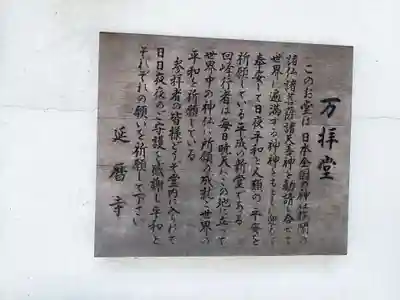 万拝堂
このお堂は日本全国の神社仏閣の
諸仏諸菩薩諸天善神を勧請し合せて
世界に遍満する神神をも共に迎えて
奉安して日夜平和と人類の平安を
祈願している平成の祈堂である
回峰行者は毎日暁天にこの地に立って
世界中の神仏に所願の成就と世界の
平和を祈願している
参拝者の皆様どうぞ堂内に入られて
日日夜夜のご守護を感謝し平和と
それぞれの願いを祈願して下さい
延暦寺